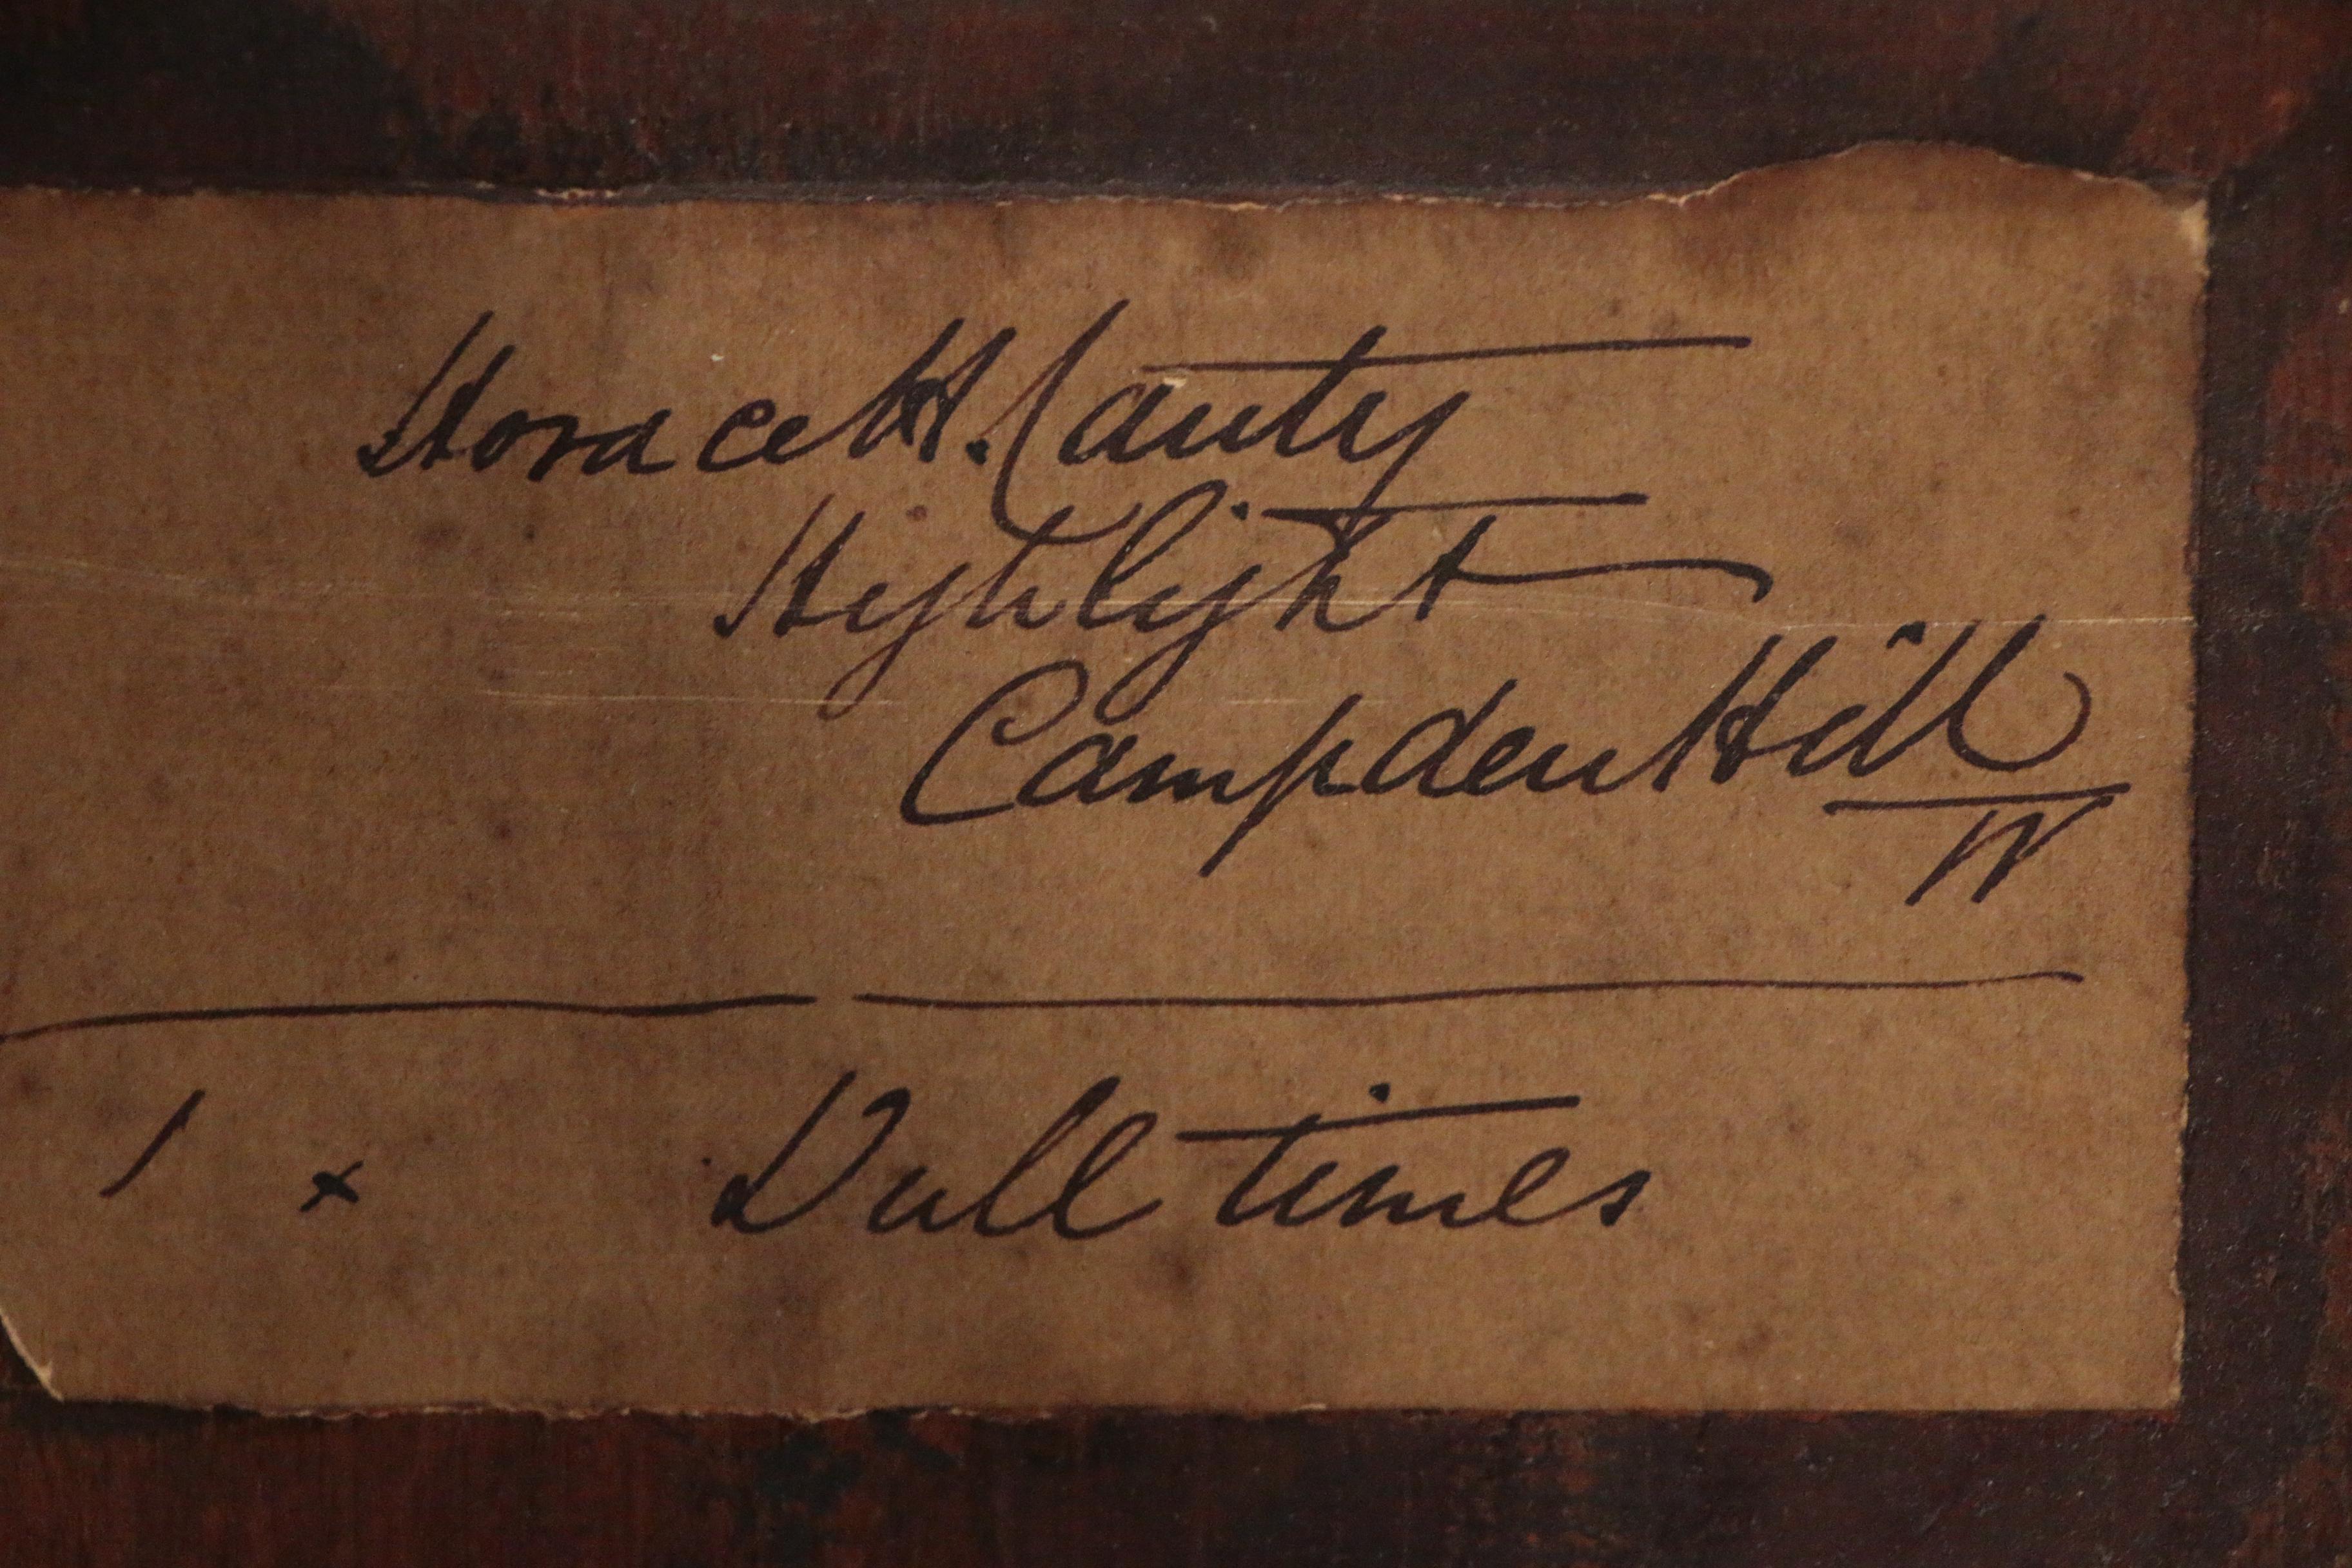 Horace H. Cauty
Highlight
Campden Hill
W
1 x Dull times